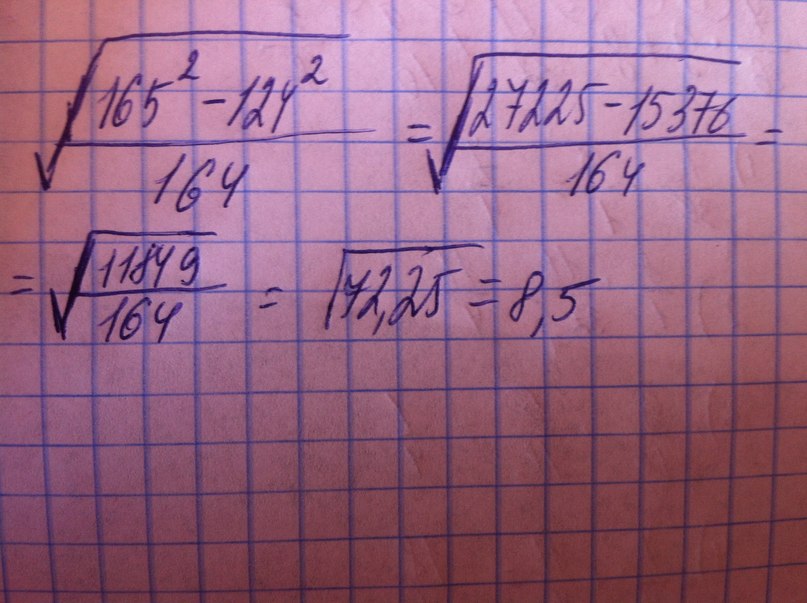 √(165² - 124²)/164 = √(27225 - 15376)/164 =
= √11849/164 = √72,25 = 8,5